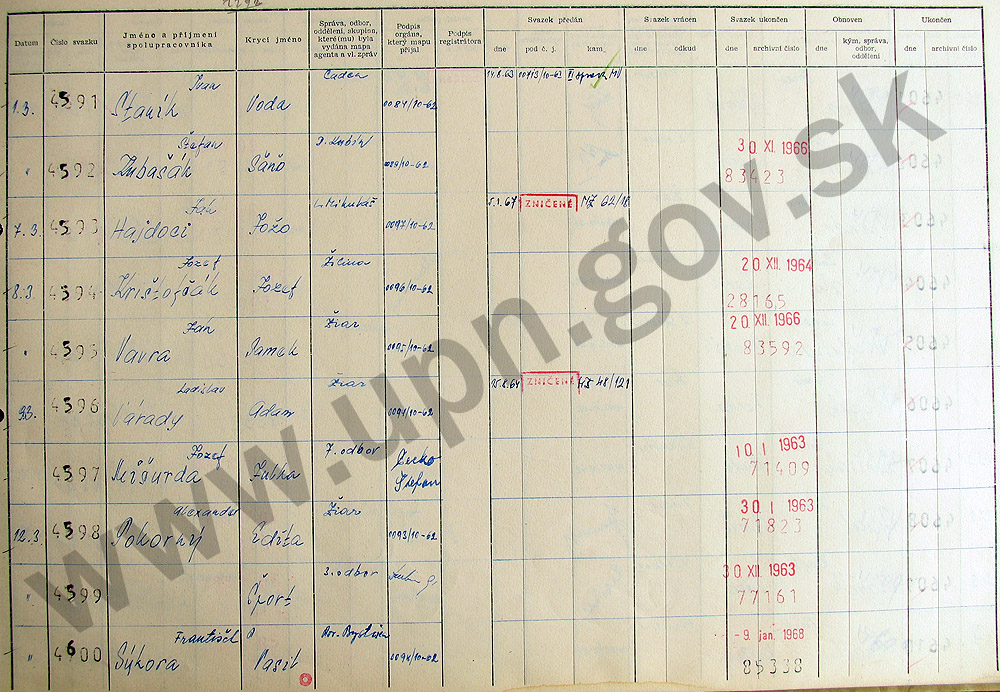 Datum
Číslo svazku
Jméno a příjmení spolupracovníka
Krycí jméno
Správa, odbor, oddělení, skupina, které(mu) byla vydána mapa agenta a vl. zpráv
Podpis orgána, který mapu přijal
Podpis registrátora
Svazek předán
dne
pod č. j.
kam
Svazek vrácen
dne
odkud
Svazek ukončen
dne
archivní číslo
Obnoven
dne
kým, správa, odbor, oddělení
Ukončen
dne
archivní číslo
1.3. 4591 Ivan Staník Voda Čadca 0084/10-62 14.8.63
" 4592 Štefan Sáňo D. Kubín 30 XI. 1966 83423
7.3. 4593 Ján Hajdoci Jožo L. Mikuláš 0097/10-62 5.1.67 ZNIČENÉ
8.3. 4594 Jozef Krištofčák Jozef Žilina 0096/10-62 20 XII. 1964 28165
" 4595 Ján Vavra Žiar 0095/10-62 20 XII. 1966 83592
9.3. 4596 Ladislav Várady Adam Žiar 0094/10-62 ZNIČENÉ 48/121
4597 Jozef Mišurda 7. odbor Štefan 10. I 1963 71409
12.3 4598 Alexander Pokorný Edita Žiar 0093/10-62 30 I 1963 71823
" 4599 Šport 3. odbor 30. XII. 1963 77161
" 4600 František Sýkora Pasit Pov. Bystrica - 9. jan. 1968 85338
www.upn.gov.sk